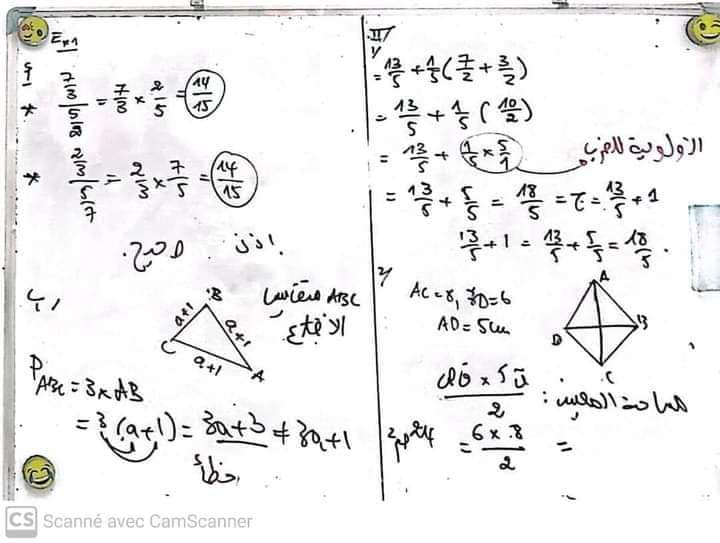 Ex1
أ/
* 7/3 / 5/2 = 7/3 × 2/5 = 14/15
* 2/3 / 5/7 = 2/3 × 7/5 = 14/15
إذن صحيح.
ب/
ABC متقايس
الأضلاع
B
a+1
a+1
C
a+1
A
P ABC = 3×AB
= 3(a+1) = 3a+3 ≠ 3a+1
خطأ
II/
1/
= 13/5 + 1/5 (7/2 + 3/2)
= 13/5 + 1/5 (10/2)
= 13/5 + 1/5 × 5/1
الأولوية للضرب
= 13/5 + 5/5 = 18/5 = ج = 13/5 + 1
13/5 + 1 = 13/5 + 5/5 = 18/5.
2/
AC = 8, BD = 6
AD = 5cm
A
D
B
C
مساحة المعين:
2
= 6 × 8 / 2 =
CS Scanné avec CamScanner